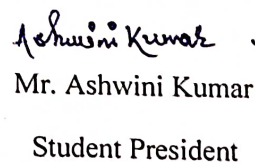 Ashwini Kumar
Mr. Ashwini Kumar
Student President